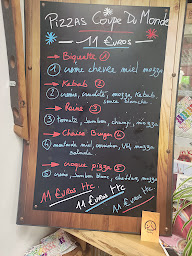 Pizzas Coupe Du Monde
11 €uros
→ Biquette ①
① creme chevre miel mozza
→ Kebab ②
② creme, crudité, mozza, Kebab
sauce blanche
→ Reine ③
③ tomate, Jambon, champi, mozza
→ Chaise Burger ④
④ moutarde miel, cornichon, VH, mozza
salade
→ croque pizza ⑤
⑤ creme, Jambon blanc, cheddar, mozza
11 €uros ttc
11 €uros ttc
11 €uros ttc